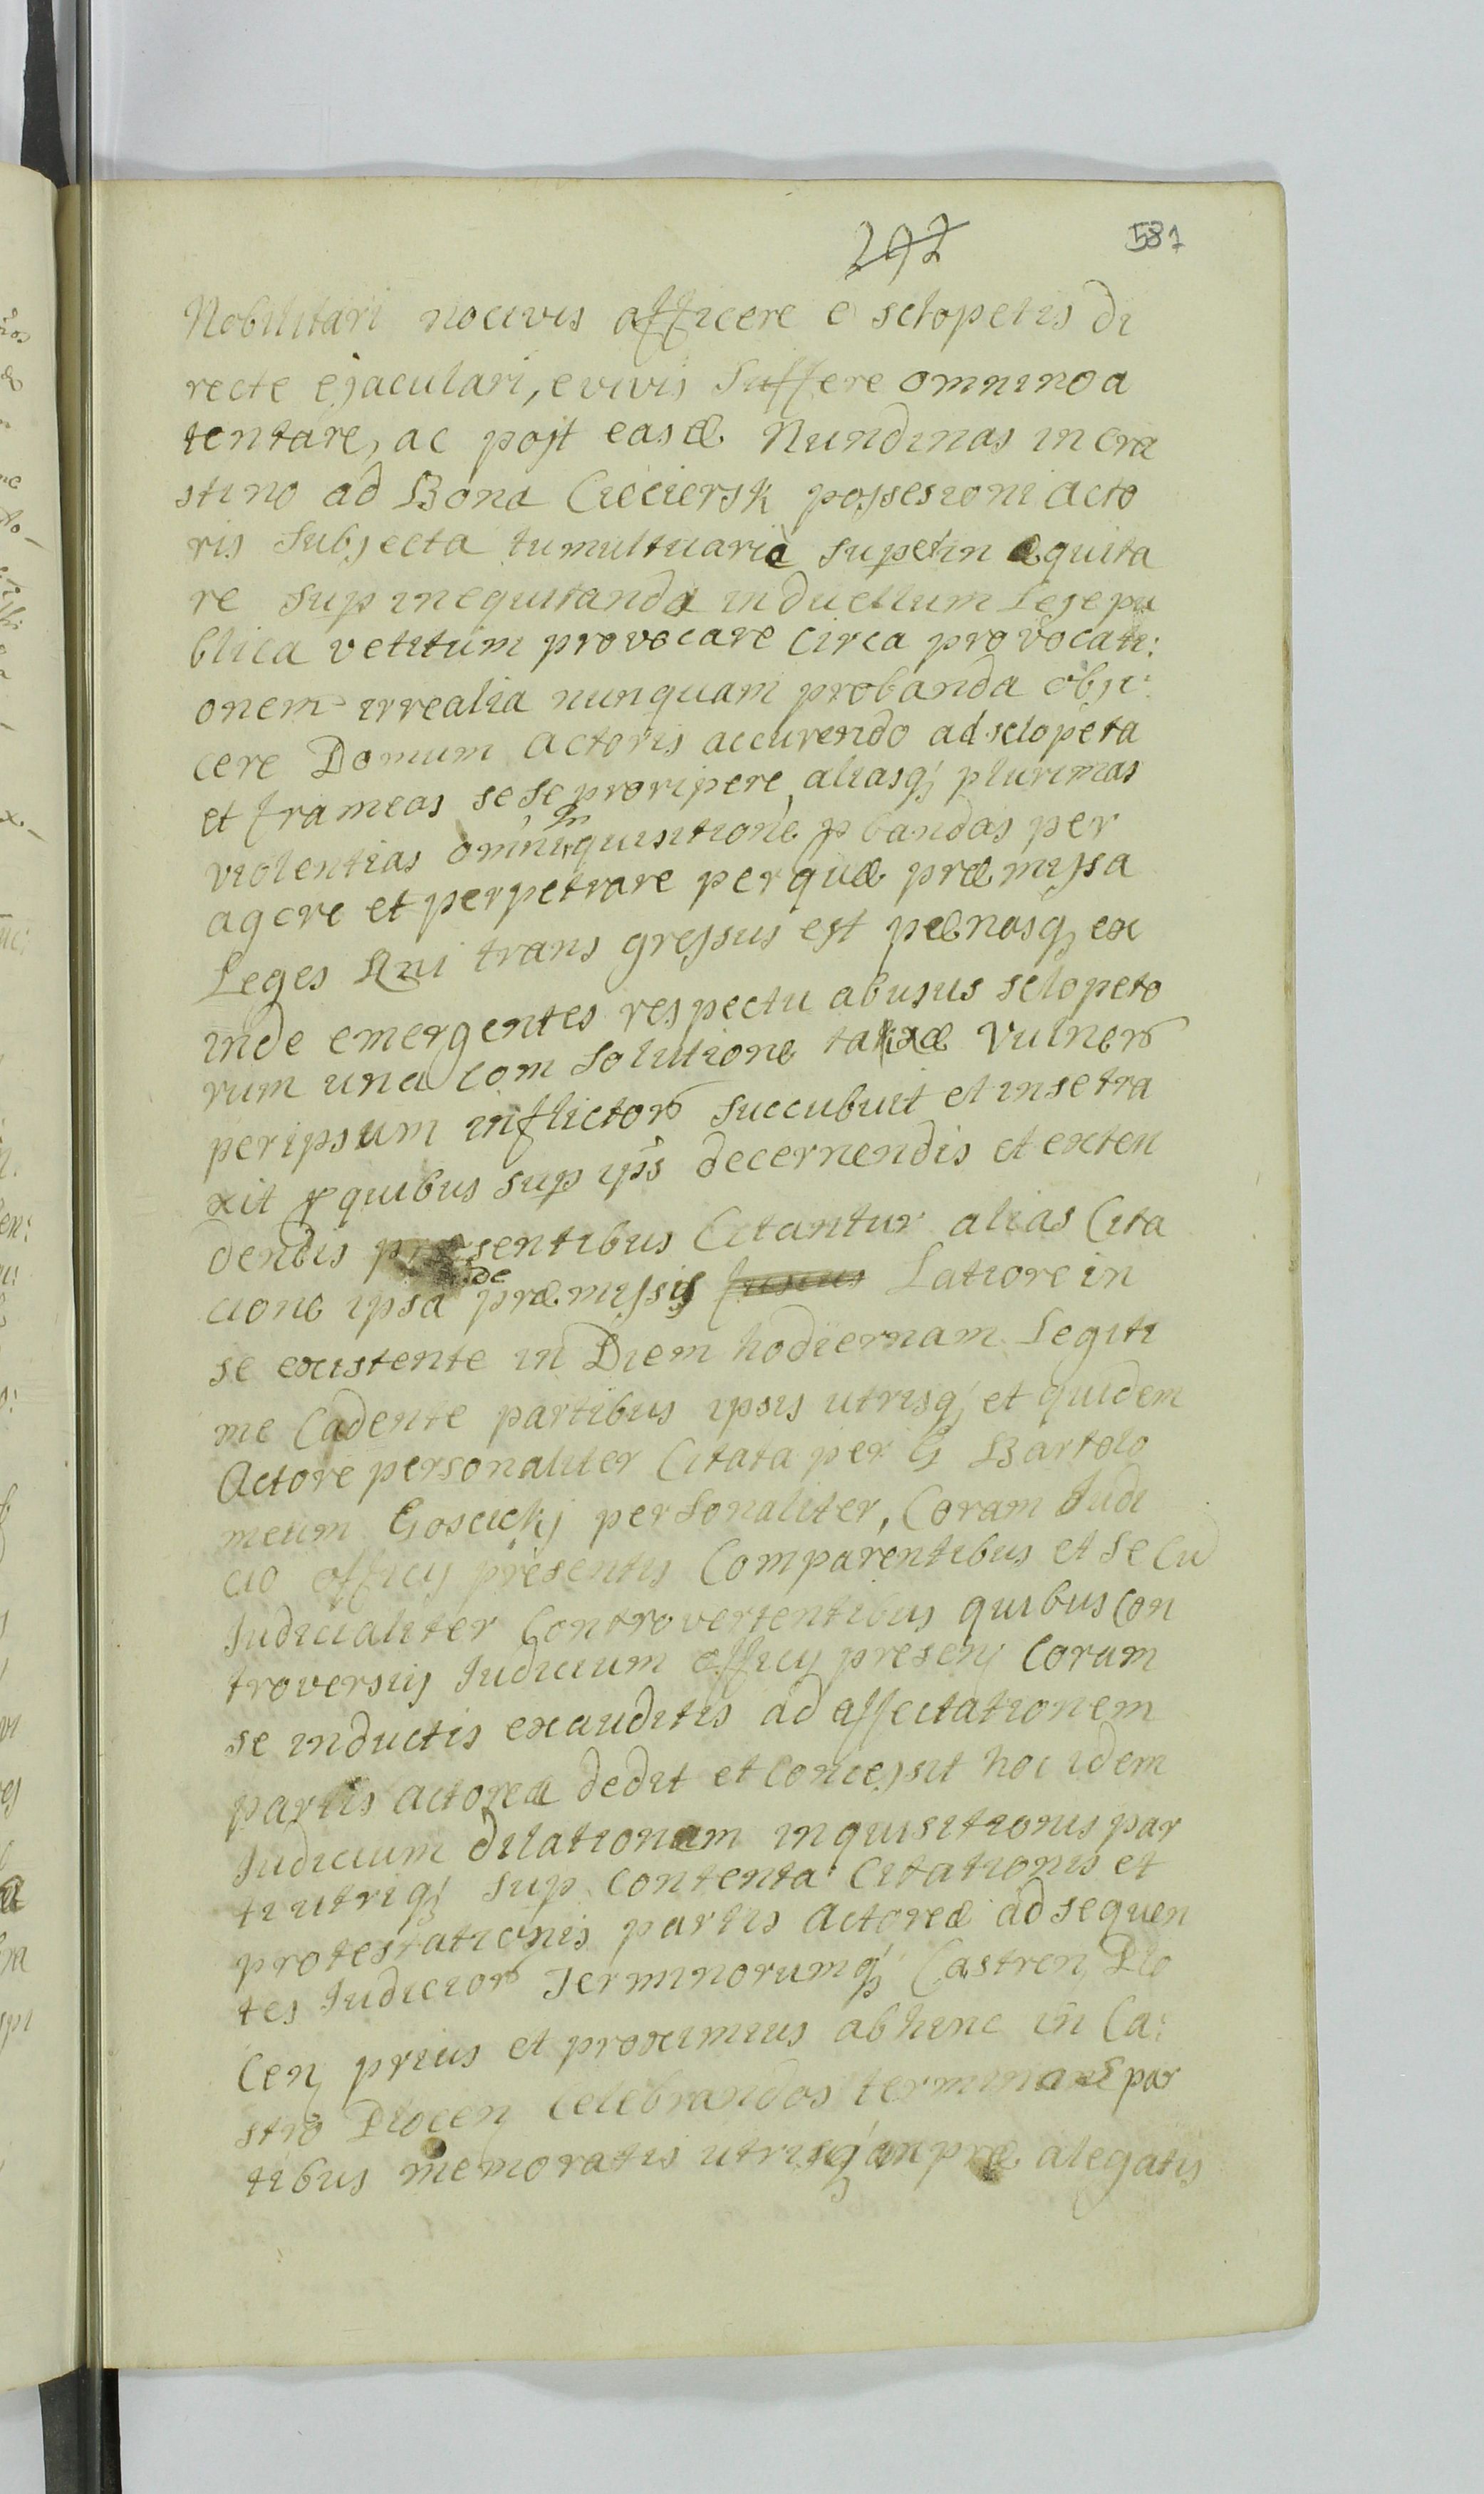 297 581
Nobilitari nocivis afficere e sclopetis di
recte ejaculari, e vivis suffere omnino a
tentare, ac post easdæ Nundinas in cra
stino ad Bona Cieciersk possesioni acto
ris Subjecta tumultuariè supetin equita
re sup inequitanda in duellum Lege pu
blica vetitum provocare circa provocati:
onem irrealia nunquam probanda obji:
cere Domum actoris accurendo ad sclopeta
et frameas sese proripere aliasq; plurimas
violentias omni inquisitione pbandas per
agere et perpetrare per quæ præmissa
Leges Rni trans gressus est pœnasq; ex
inde emergentes respectu abusus sclopeto
rum una com solutione taxæ vulnerꝝ
per ipsum inflictorꝝ succubuit et in se tra
xit pro quibus sup ips decernendis et exten
dendis præsentibus Citantur alias Cita
cione ipsa de præmissis fusius Latiore in
se existente in Diem hodiernam Legiti
me Cadente partibus ipsis utrisq; et quidem
Actore personaliter Citata per G Bartolo
meum Goscickj personaliter, Coram Judi
cio officij presentis Comparentibus et se cū
Judicialiter Controvertentibus quibus Con
troversijs Judicium officij presenj Coram
se inductis exauditis ad affectationem
partis actoreæ dedit et Concessit hoc idem
Judicium dilationem inquisitionis par
ti utriq; sup Contenta Citationis et
protestationis partis Actoreæ ad sequen
tes Judiciorꝝ Terminorumq; Castren Plo
Cen prius et proximius abhinc in Ca:
stro Plocen Celebrandos terminum par
tibus memoratis utrisq; in præ alegatis